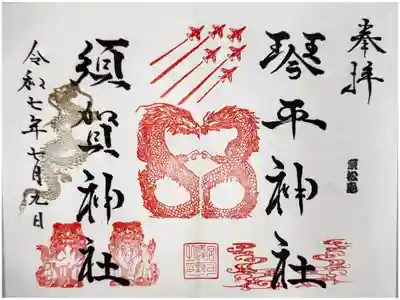 奉拝
琴平神社
須賀神社
令和七年七月九日